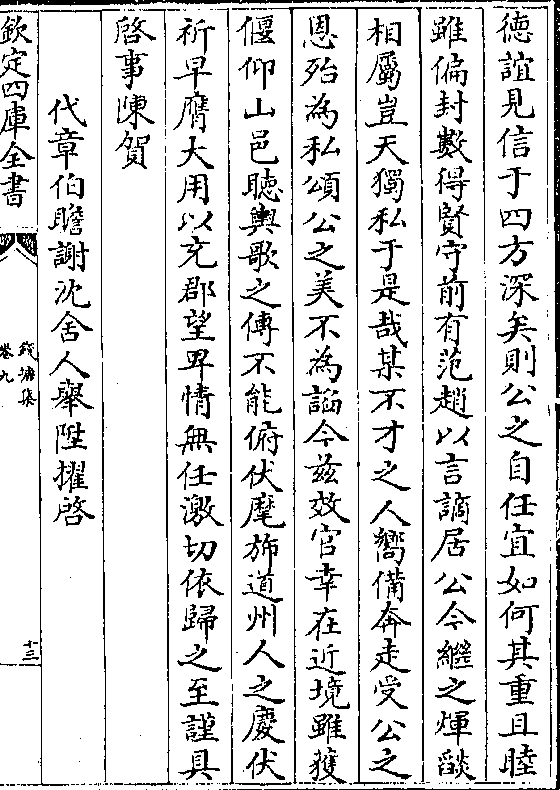 徳誼見信于四方深矣則公之自任宜如何其重且睦
雖偏封數得賢守前有范趙以言謫居公今繼之煇燄
相屬豈天獨私于是哉某不才之人嚮備奔走受公之
恩殆為私頌公之美不為謟今兹效官幸在近境雖獲
偃仰山邑聴輿歌之傳不能俯伏麾斾道州人之慶伏
祈早膺大用以充郡望卑情無任激切依歸之至謹具
啓事陳賀
代章伯瞻謝沈舍人舉陞擢啓
欽定四庫全書
錢塘集
卷九
十三